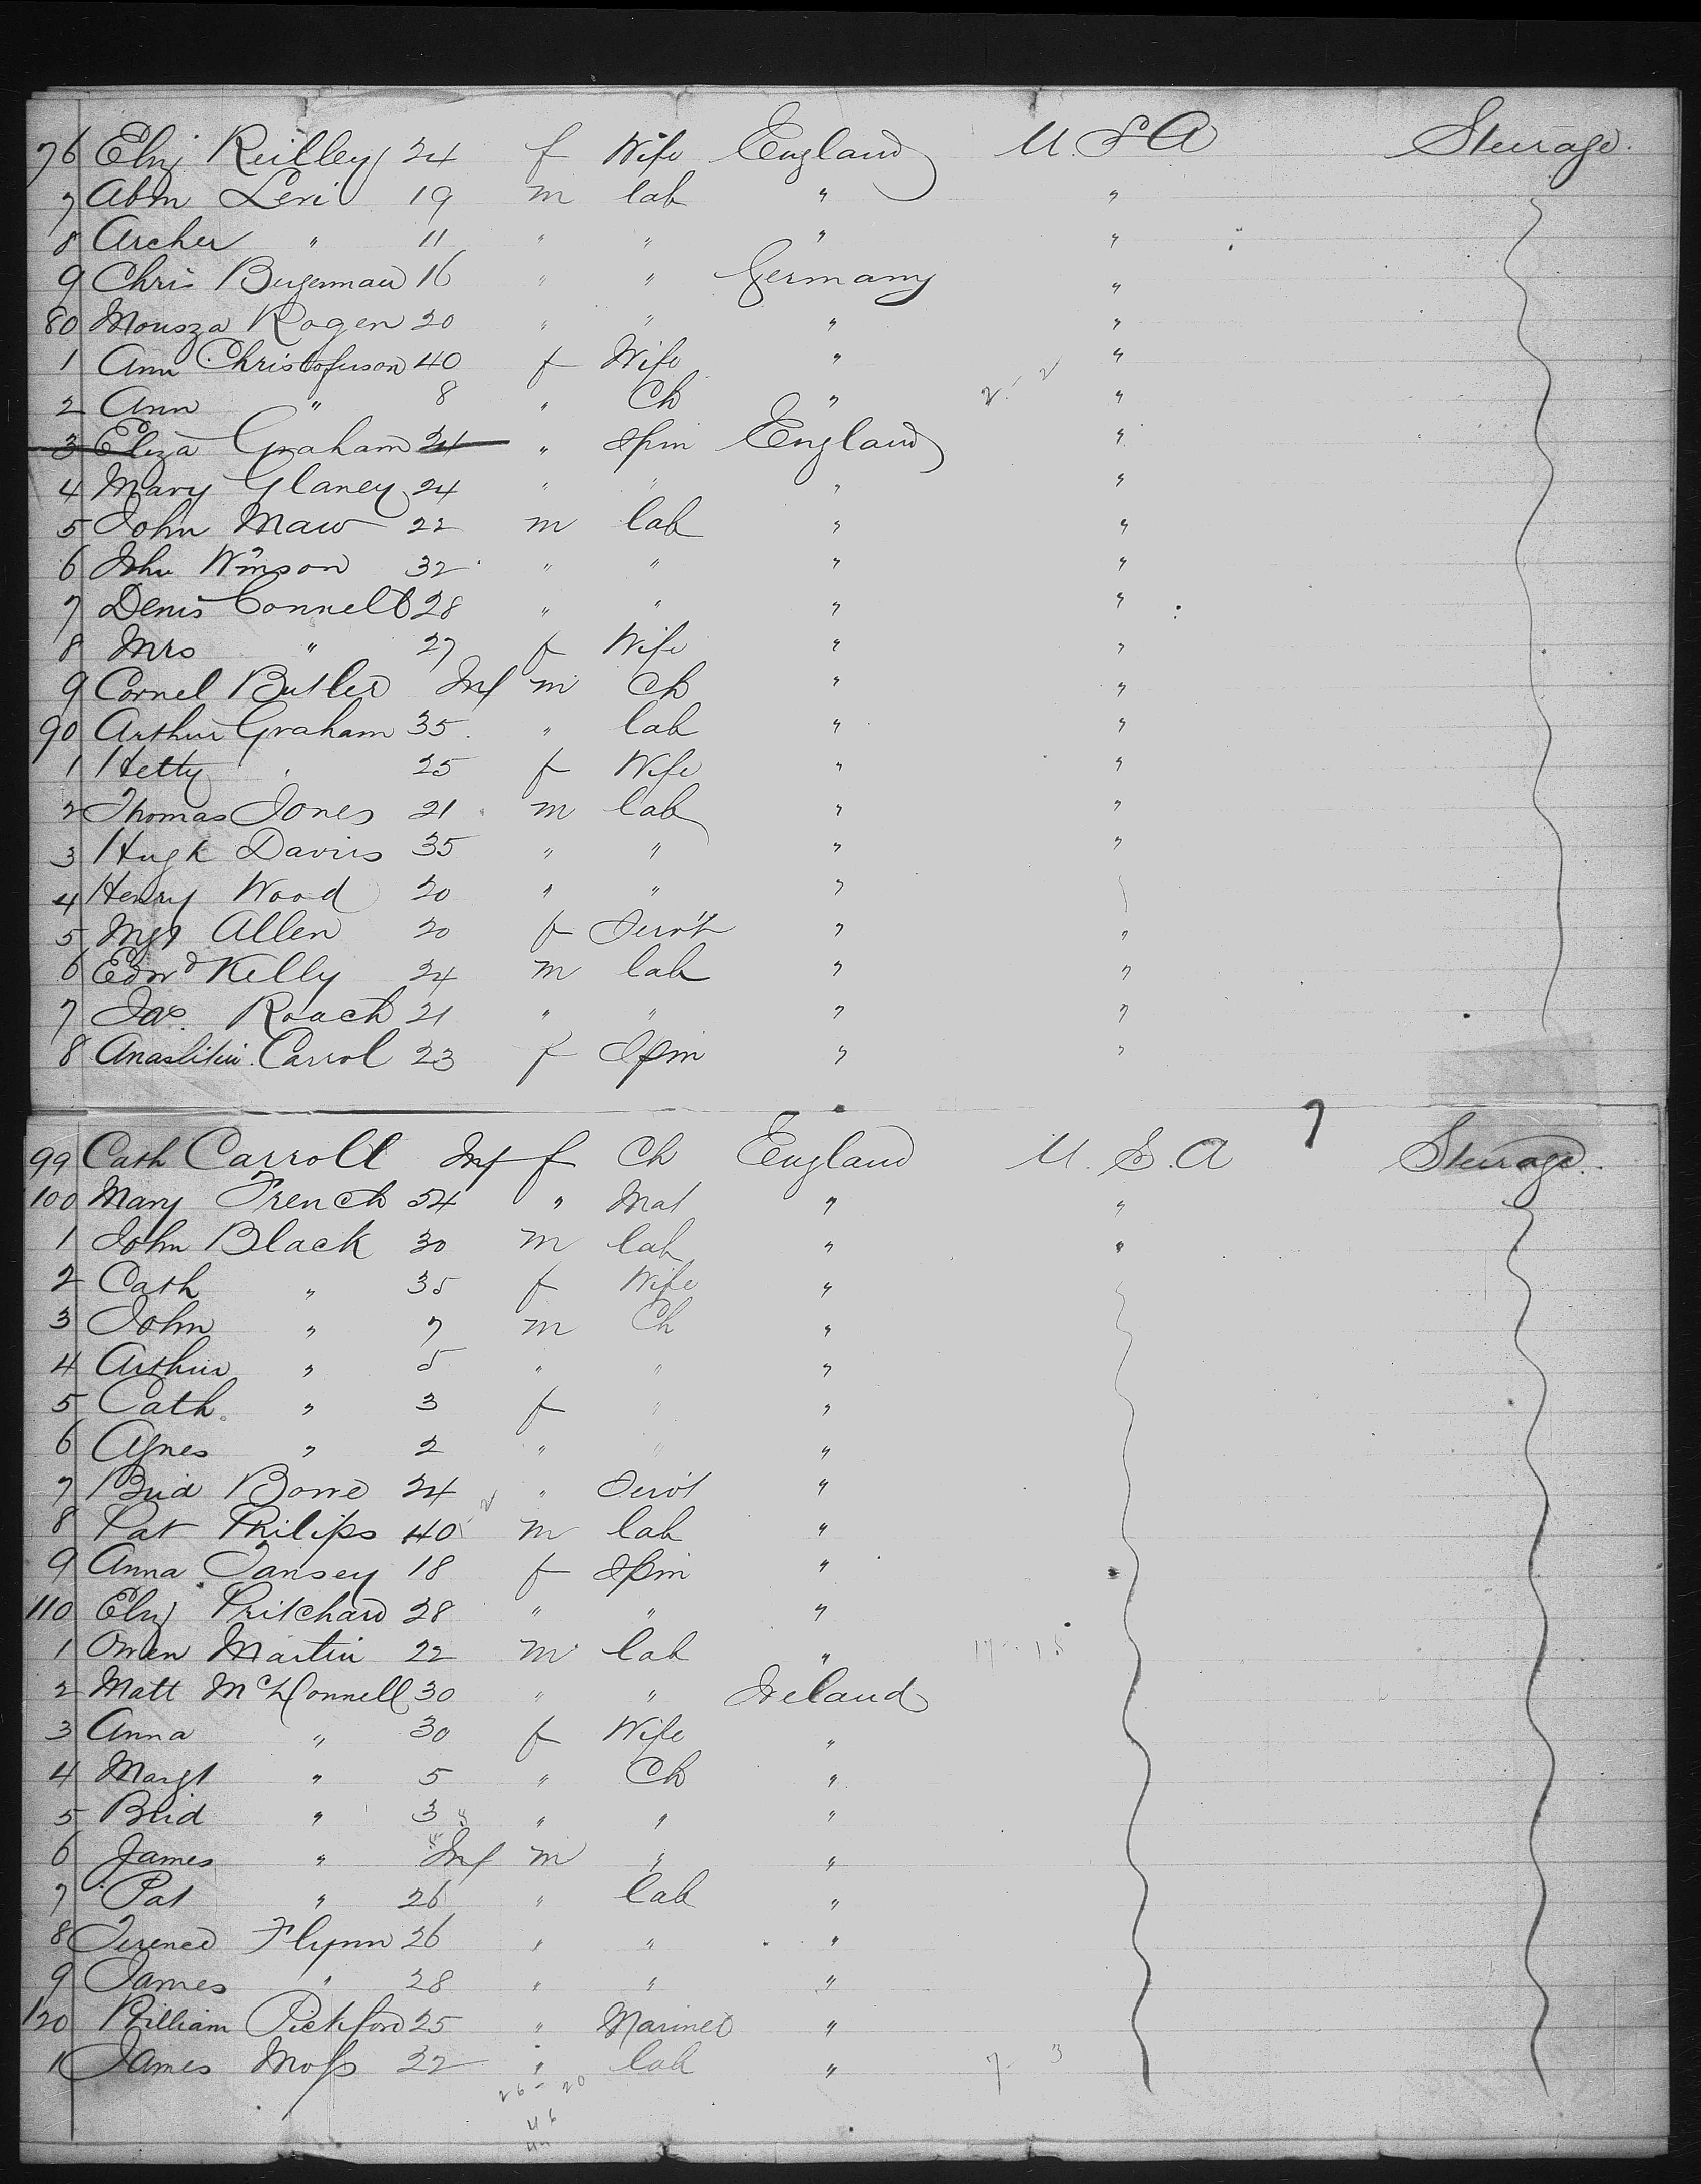 76 Eliz Reilley 24 f Wife England U.S.A Steerage.
7 Abm Levi 19 m lab " "
8 Archer " 11 " " " "
9 Chris 16 " " Germany "
80 Rogen 20 " " " "
1 Ann Christoferson 40 f Wife " "
2 Ann " 8 " Ch " 2 - 2 "
3 Eliza Graham 24 " Spin England "
4 Mary Glaney 24 " " " "
5 John Maw 22 m lab " "
6 John Winson 32 " " " "
7 Denis Connell 28 " " " "
8 Mrs " 27 f Wife " "
9 Cornel Butler Inf m Ch " "
90 Arthur Graham 35 " lab " "
1 Hetty " 25 f Wife " "
2 Thomas Jones 21 m lab " "
3 Hugh Davis 35 " " " "
4 Henry Wood 20 " " "
5 Mgt Allen 20 f Servt " "
6 Edwd Kelly 24 m lab " "
7 Jas. Roach 21 " " " "
8 Carrol 23 f Spin " "
7
99 Cath Carroll Inf f Ch England U.S.A Steerage.
100 Mary French 54 " Mat " "
1 John Black 30 m lab " "
2 Cath " 35 f Wife "
3 John " 7 m Ch "
4 Arthur " 5 " " "
5 Cath. " 3 f " "
6 Agnes " 2 " " "
7 Brid Bowe 24 " Servt "
8 Pat Philips 40 m lab "
9 Anna Tansey 18 f Spin "
110 Eliz Pritchard 28 " " "
1 Owen Martin 22 m lab " 17 - 15
2 Matt McConnell 30 " " Ireland
3 Anna " 30 f Wife "
4 Margt " 5 " Ch "
5 Brid " 3 " " "
6 James " Inf m " "
7 Pat " 26 " lab "
8 Terence Flynn 26 " " "
9 James " 28 " " "
120 William Pickford 25 " Mariner "
1 James Moss 22 " lab " 7 - 3
26 - 20
46
44